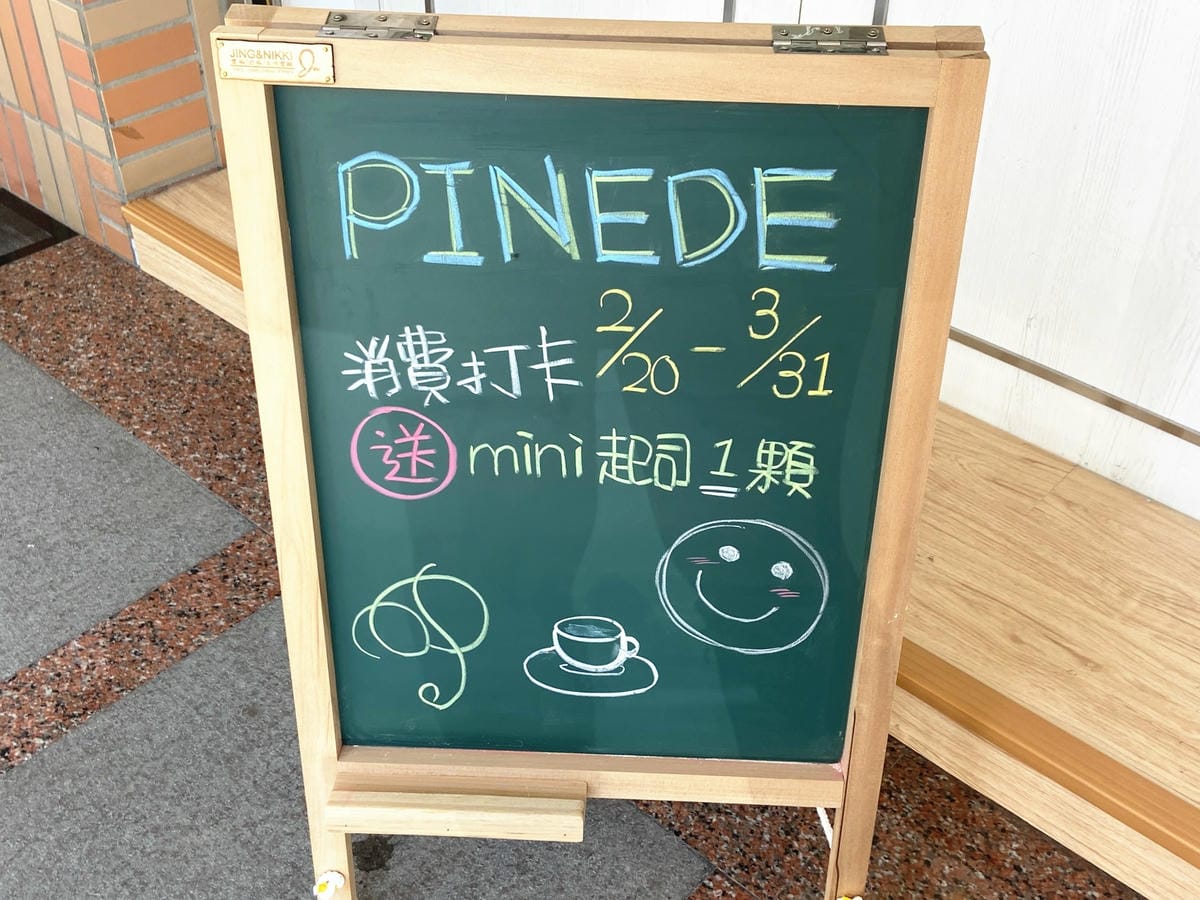 JING&NIKKI
PINEDE
消費打卡 2/20 - 3/31
送 mini 起司 1 顆